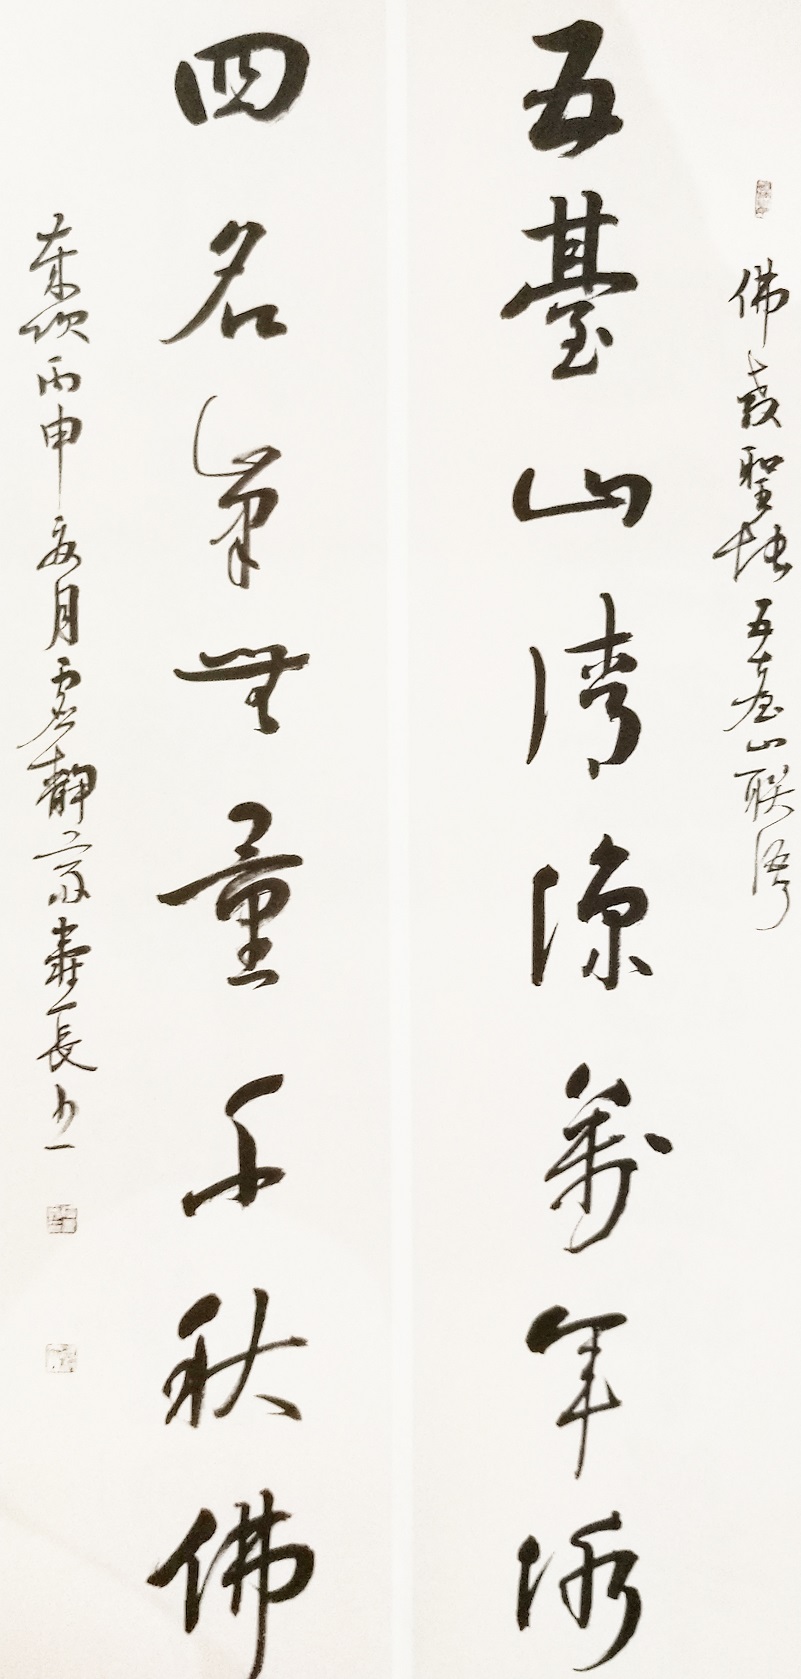 佛教聖地五臺山联語
五臺山清涼萬年冰
四名無量千秋佛
歲次丙申夏月虛靜齋壽長书